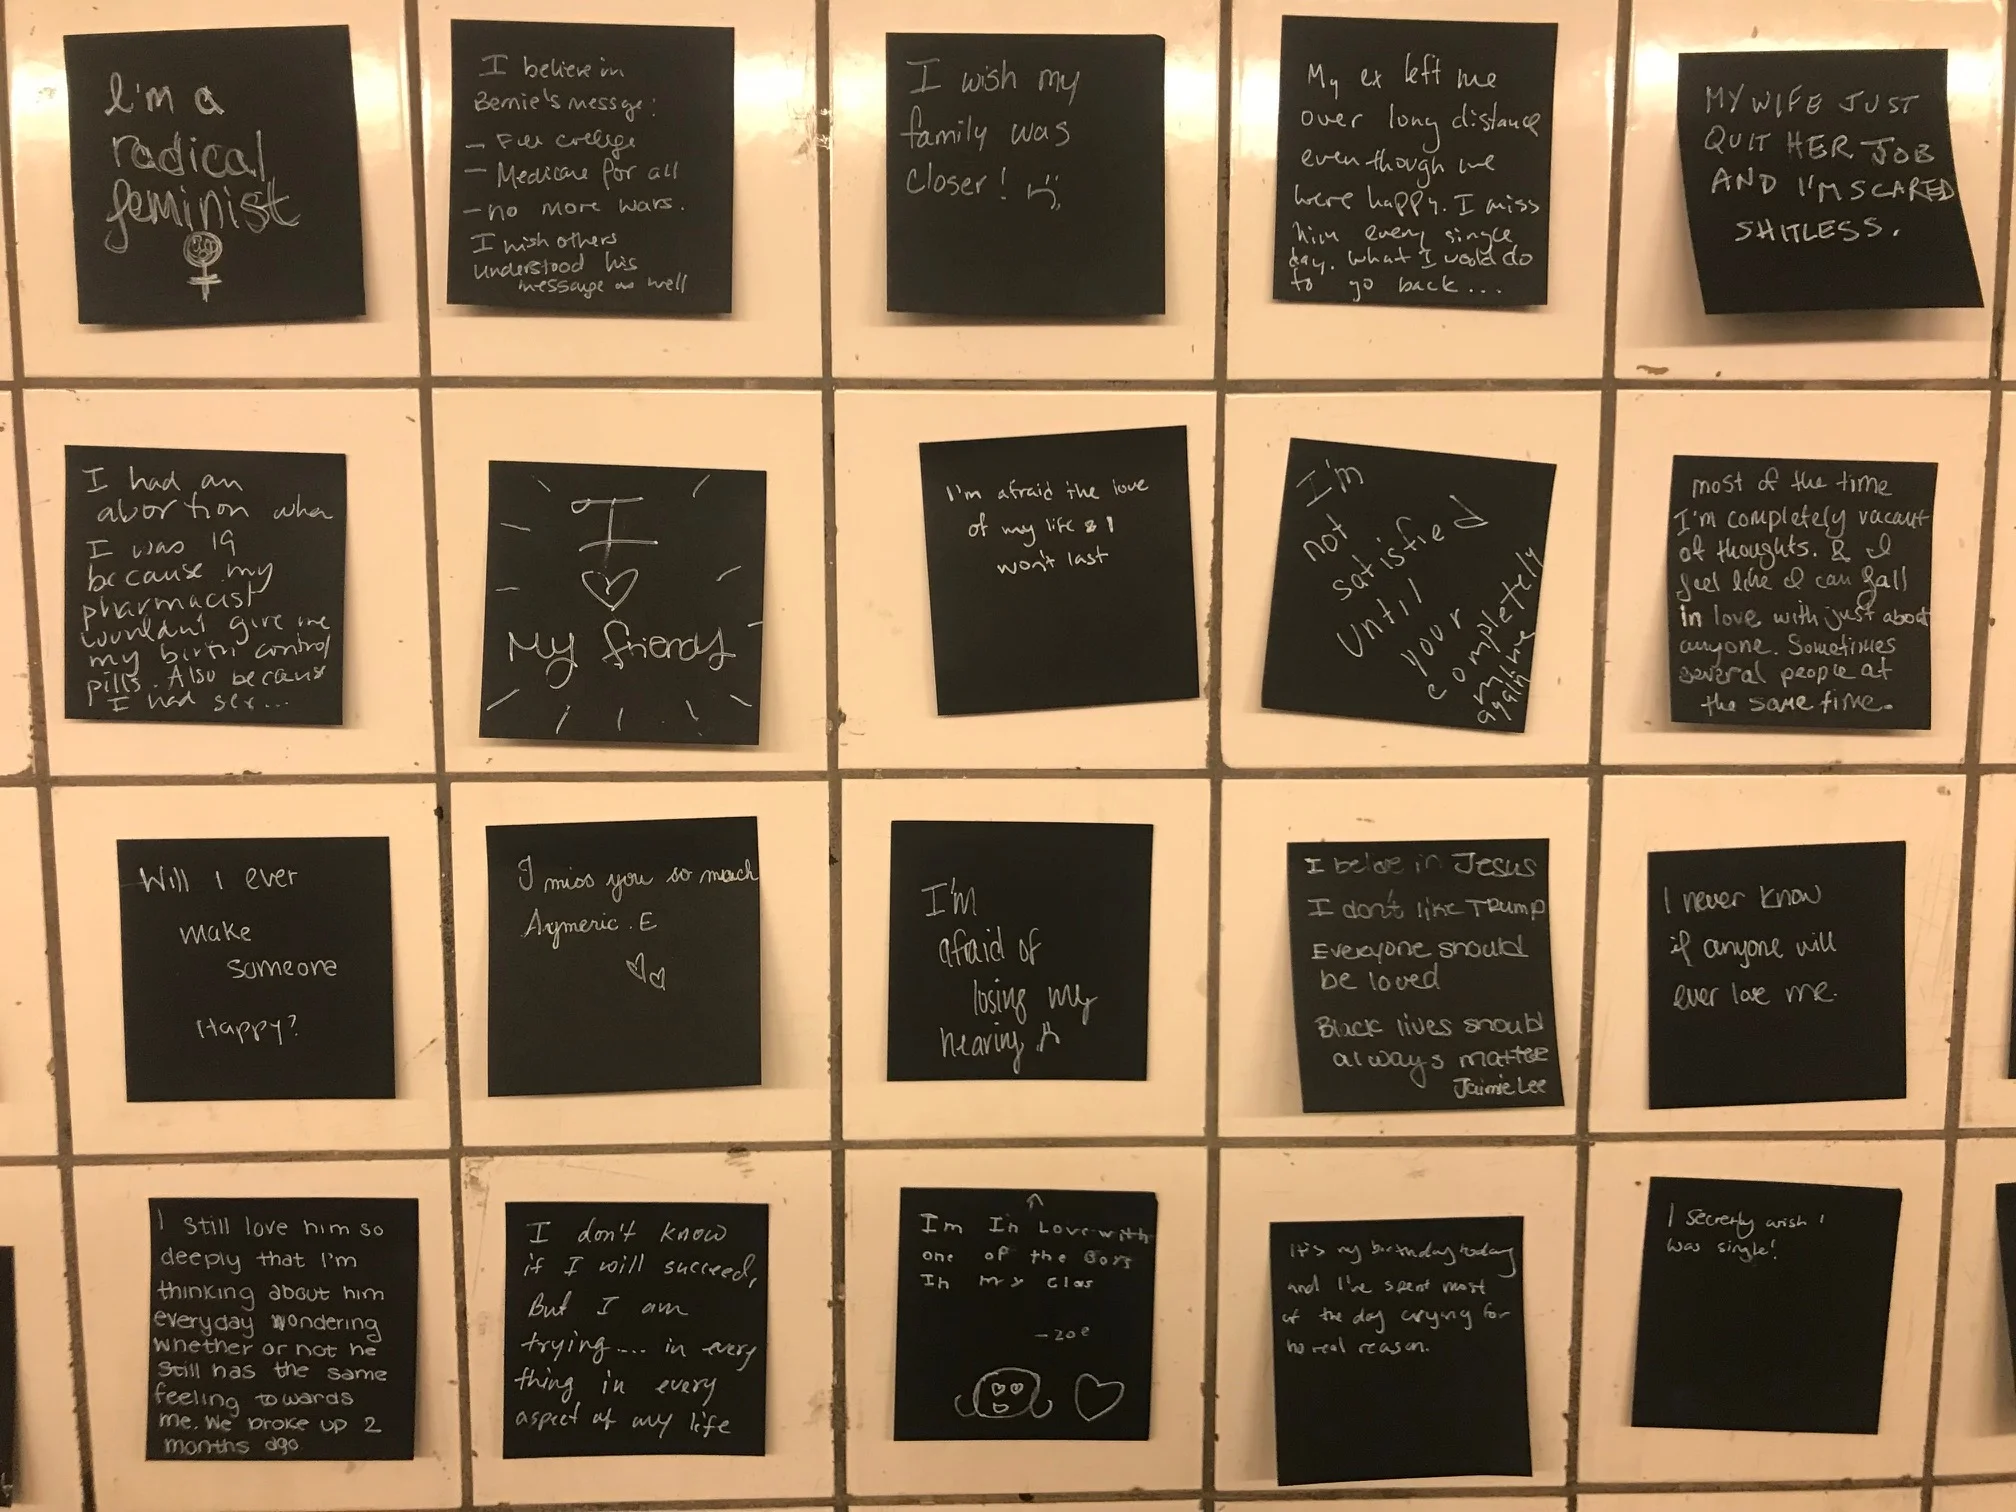 I'm a
radical
feminist
I believe in
Bernie's message:
- Free college
- Medicare for all
- no more wars.
I wish others
understood his
message as well
I wish my
family was
closer! :(
My ex left me
over long distance
even though we
were happy. I miss
him every single
day. What I would do
to go back...
MY WIFE JUST
QUIT HER JOB
AND I'M SCARED
SHITLESS.
I had an
abortion when
I was 19
because my
pharmacist
wouldn't give me
my birth control
pills. Also because
I had sex...
I
♡
My friends
I'm afraid the love
of my life & I
won't last
I'm
not
satisfied
until
your
completely
mine
again
most of the time
I'm completely vacant
of thoughts. & I
feel like I can fall
in love with just about
anyone. Sometimes
several people at
the same time.
Will I ever
make
someone
Happy?
I miss you so much
Aymeric. E
I'm
afraid of
losing my
hearing :(
I beleve in Jesus
I don't like Trump
Everyone should
be loved
Black lives should
always matter
Jaimie Lee
I never know
if anyone will
ever love me.
I still love him so
deeply that I'm
thinking about him
everyday wondering
whether or not he
still has the same
feeling towards
me. We broke up 2
months ago
I don't know
if I will succeed,
But I am
trying.... in every
thing in every
aspect of my life
Im In Love with
one of the Boys
In my clas
- zoe
It's my birthday today
and I've spent most
of the day crying for
no real reason.
I secretly wish I
was single!